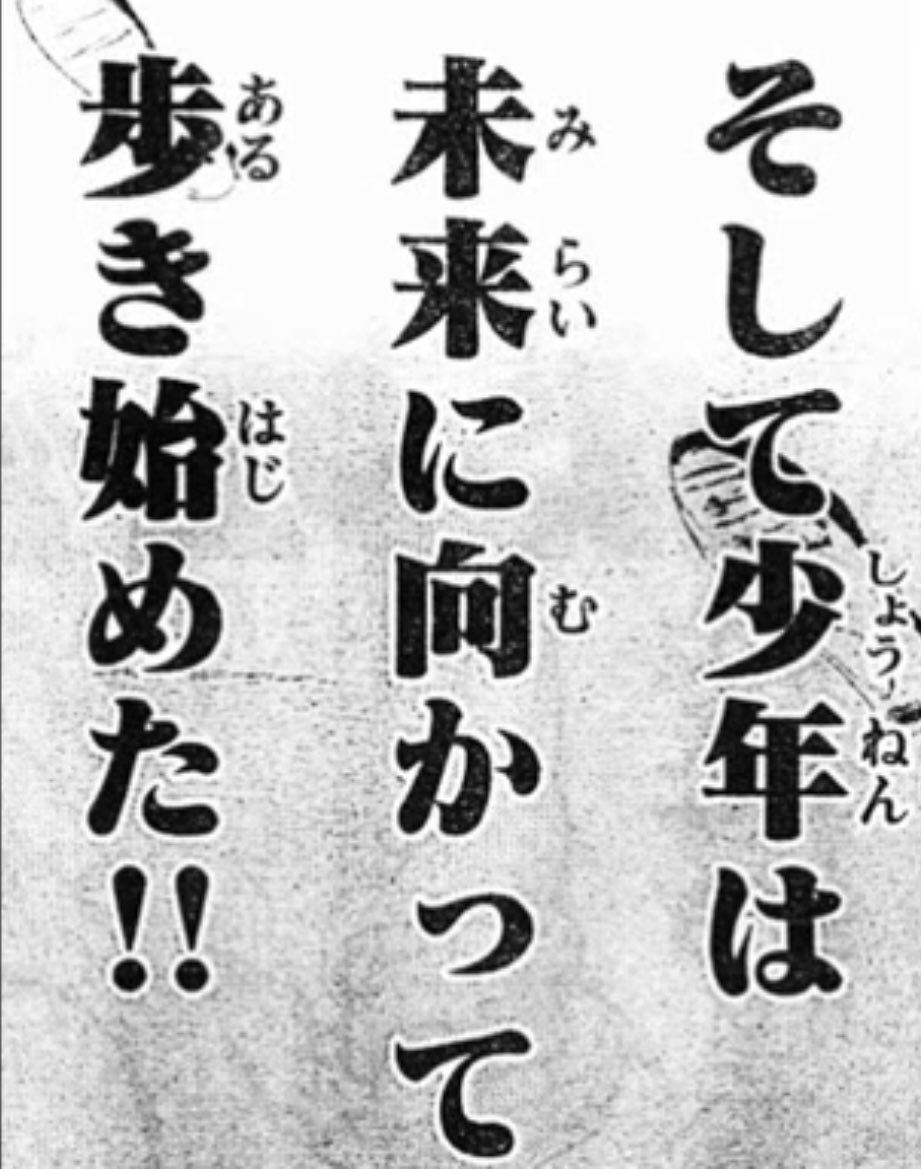 そして少年は
未来に向かって
歩き始めた!!